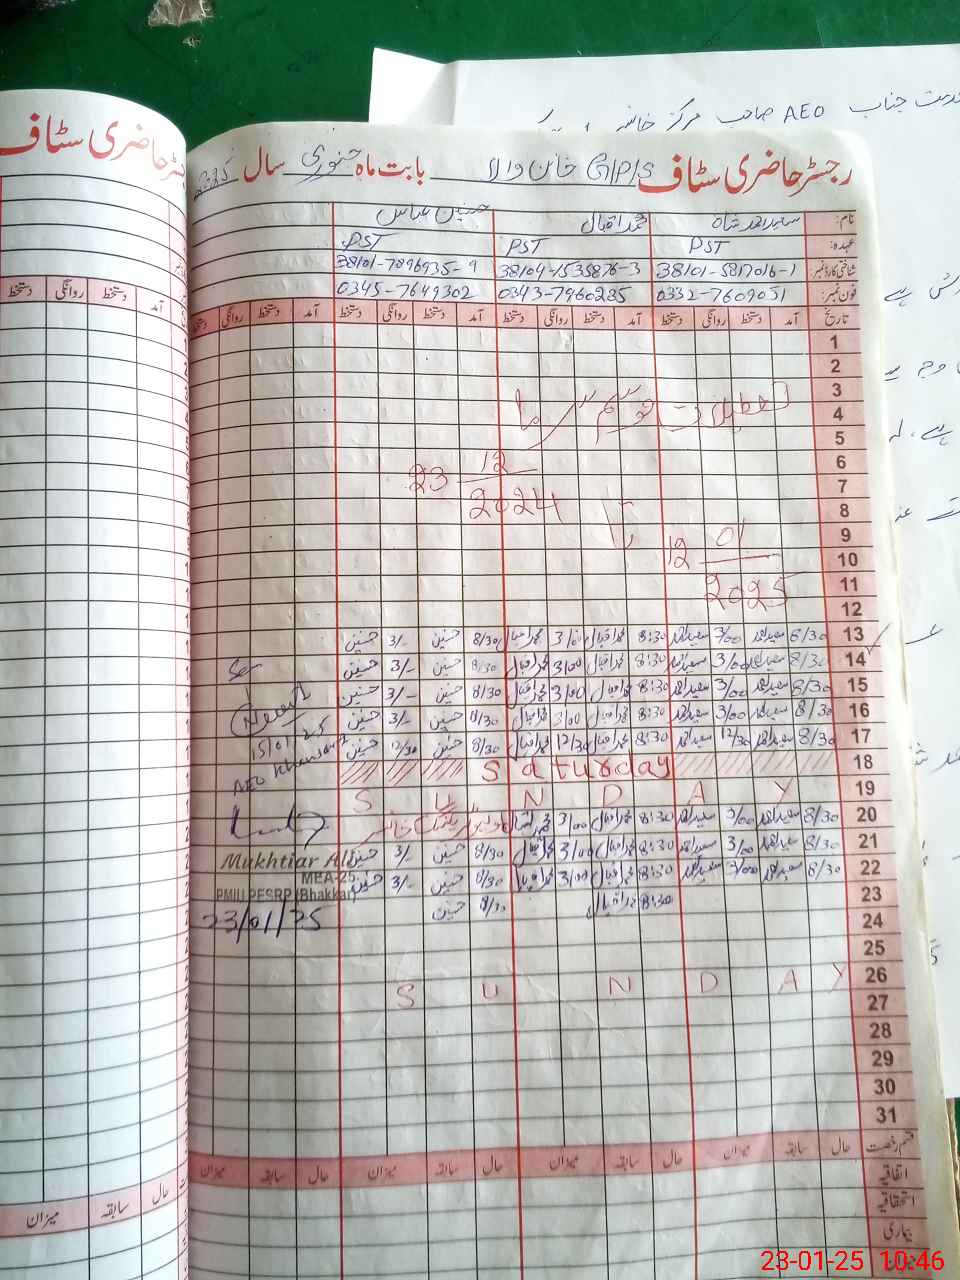 خدمت جناب AEO صاحب مرکز
رجسٹر حاضری سٹاف GPS خان والا بابت ماہ جنوری سال 2025
نام: سعید احمد شاہ محمد اقبال حسنین عباس
عہدہ: PST PST PST
شناختی کارڈ نمبر: 38101-5817016-1 38104-1535876-3 38101-7896935-9
فون نمبر: 0332-7609051 0343-7960285 0345-7649302
تاریخ آمد دستخط روانگی دستخط آمد دستخط روانگی دستخط آمد دستخط روانگی دستخط آمد دستخط روانگی دستخط
1
2
3
4 تعطیلات موسم سرما
5
6
7 23 12/2024
8
9
10 12 01/2025
11
12
13 8/30 سعید احمد 3/00 سعید احمد 8:30 محمد اقبال 3/00 محمد اقبال 8/30 حسنین 3/- حسنین
14 8/30 سعید احمد 3/00 سعید احمد 8:30 محمد اقبال 3/00 محمد اقبال 8/30 حسنین 3/- حسنین
15 8/30 سعید احمد 3/00 سعید احمد 8:30 محمد اقبال 3/00 محمد اقبال 8/30 حسنین 3/- حسنین
16 8/30 سعید احمد 3/00 سعید احمد 8:30 محمد اقبال 3/00 محمد اقبال 8/30 حسنین 3/- حسنین
15/01/25
17 8/30 سعید احمد 12/30 سعید احمد 8:30 محمد اقبال 12/30 محمد اقبال 8/30 حسنین 12/30 حسنین
AEO Khansar
18 Saturday
19 SUNDAY
20 8/30 سعید احمد 3/00 سعید احمد 8:30 محمد اقبال 3/00 محمد اقبال
21 8/30 سعید احمد 3/00 سعید احمد 8:30 محمد اقبال 3/00 محمد اقبال 8/30 حسنین 3/- حسنین
Mukhtiar Ali
22 8/30 سعید احمد 3/00 سعید احمد 8:30 محمد اقبال 3/00 محمد اقبال 8/30 حسنین 3/- حسنین
MEA-25
PMIU PESRP (Bhakkar)
23 8:30 محمد اقبال 8/30 حسنین
23/01/25
24
25
26 SUNDAY
27
28
29
30
31
قسم رخصت حال سابقہ میزان حال سابقہ میزان حال سابقہ میزان حال سابقہ میزان
اتفاقیہ
استحقاقیہ
بیماری
رجسٹر حاضری سٹاف
آمد دستخط روانگی دستخط
حال سابقہ میزان
23-01-25 10:46